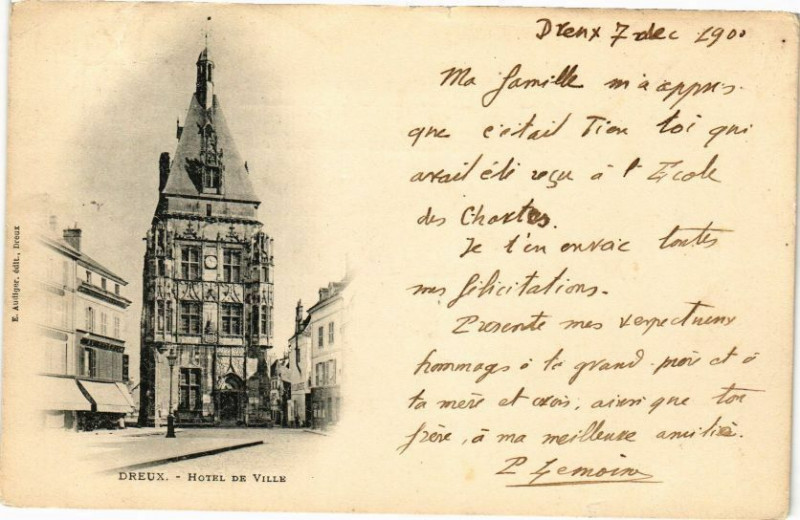 Dreux 7 dec 1900
Ma famille m'a appris
que c'était bien toi qui
avait été reçu à l'Ecole
des Chartes.
Je t'en envoie toutes
mes félicitations.
Présente mes respectueux
hommages à ta grand-mère et à
ta mère et crois, ainsi que ton
frère, à ma meilleure amitié.
P Lemoine
E. Audiger, édit., Dreux
DREUX. - HOTEL DE VILLE